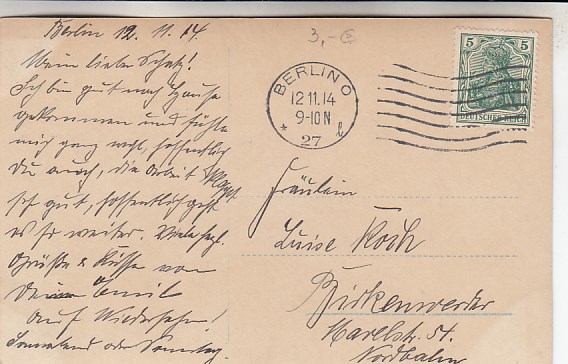 Berlin 12. 11. 14.
3,- €
Mein lieber Schatz!
Ich bin gut nach Hause
gekommen und fühle
mich ganz wohl, hoffentlich
Du auch, die Arbeit klappt
sehr gut, hoffentlich geht
es so weiter. Viele herzl.
Grüße & Küsse von
Deinem Emil
Auf Wiedersehn!
Sonnabend oder Sonntag.
BERLIN O
12.11.14
9-10 N
* 27 l
5 5
DEUTSCHES REICH
Fräulein
Luise Koch
Birkenwerder
Havelstr. 51.
Nordbahn